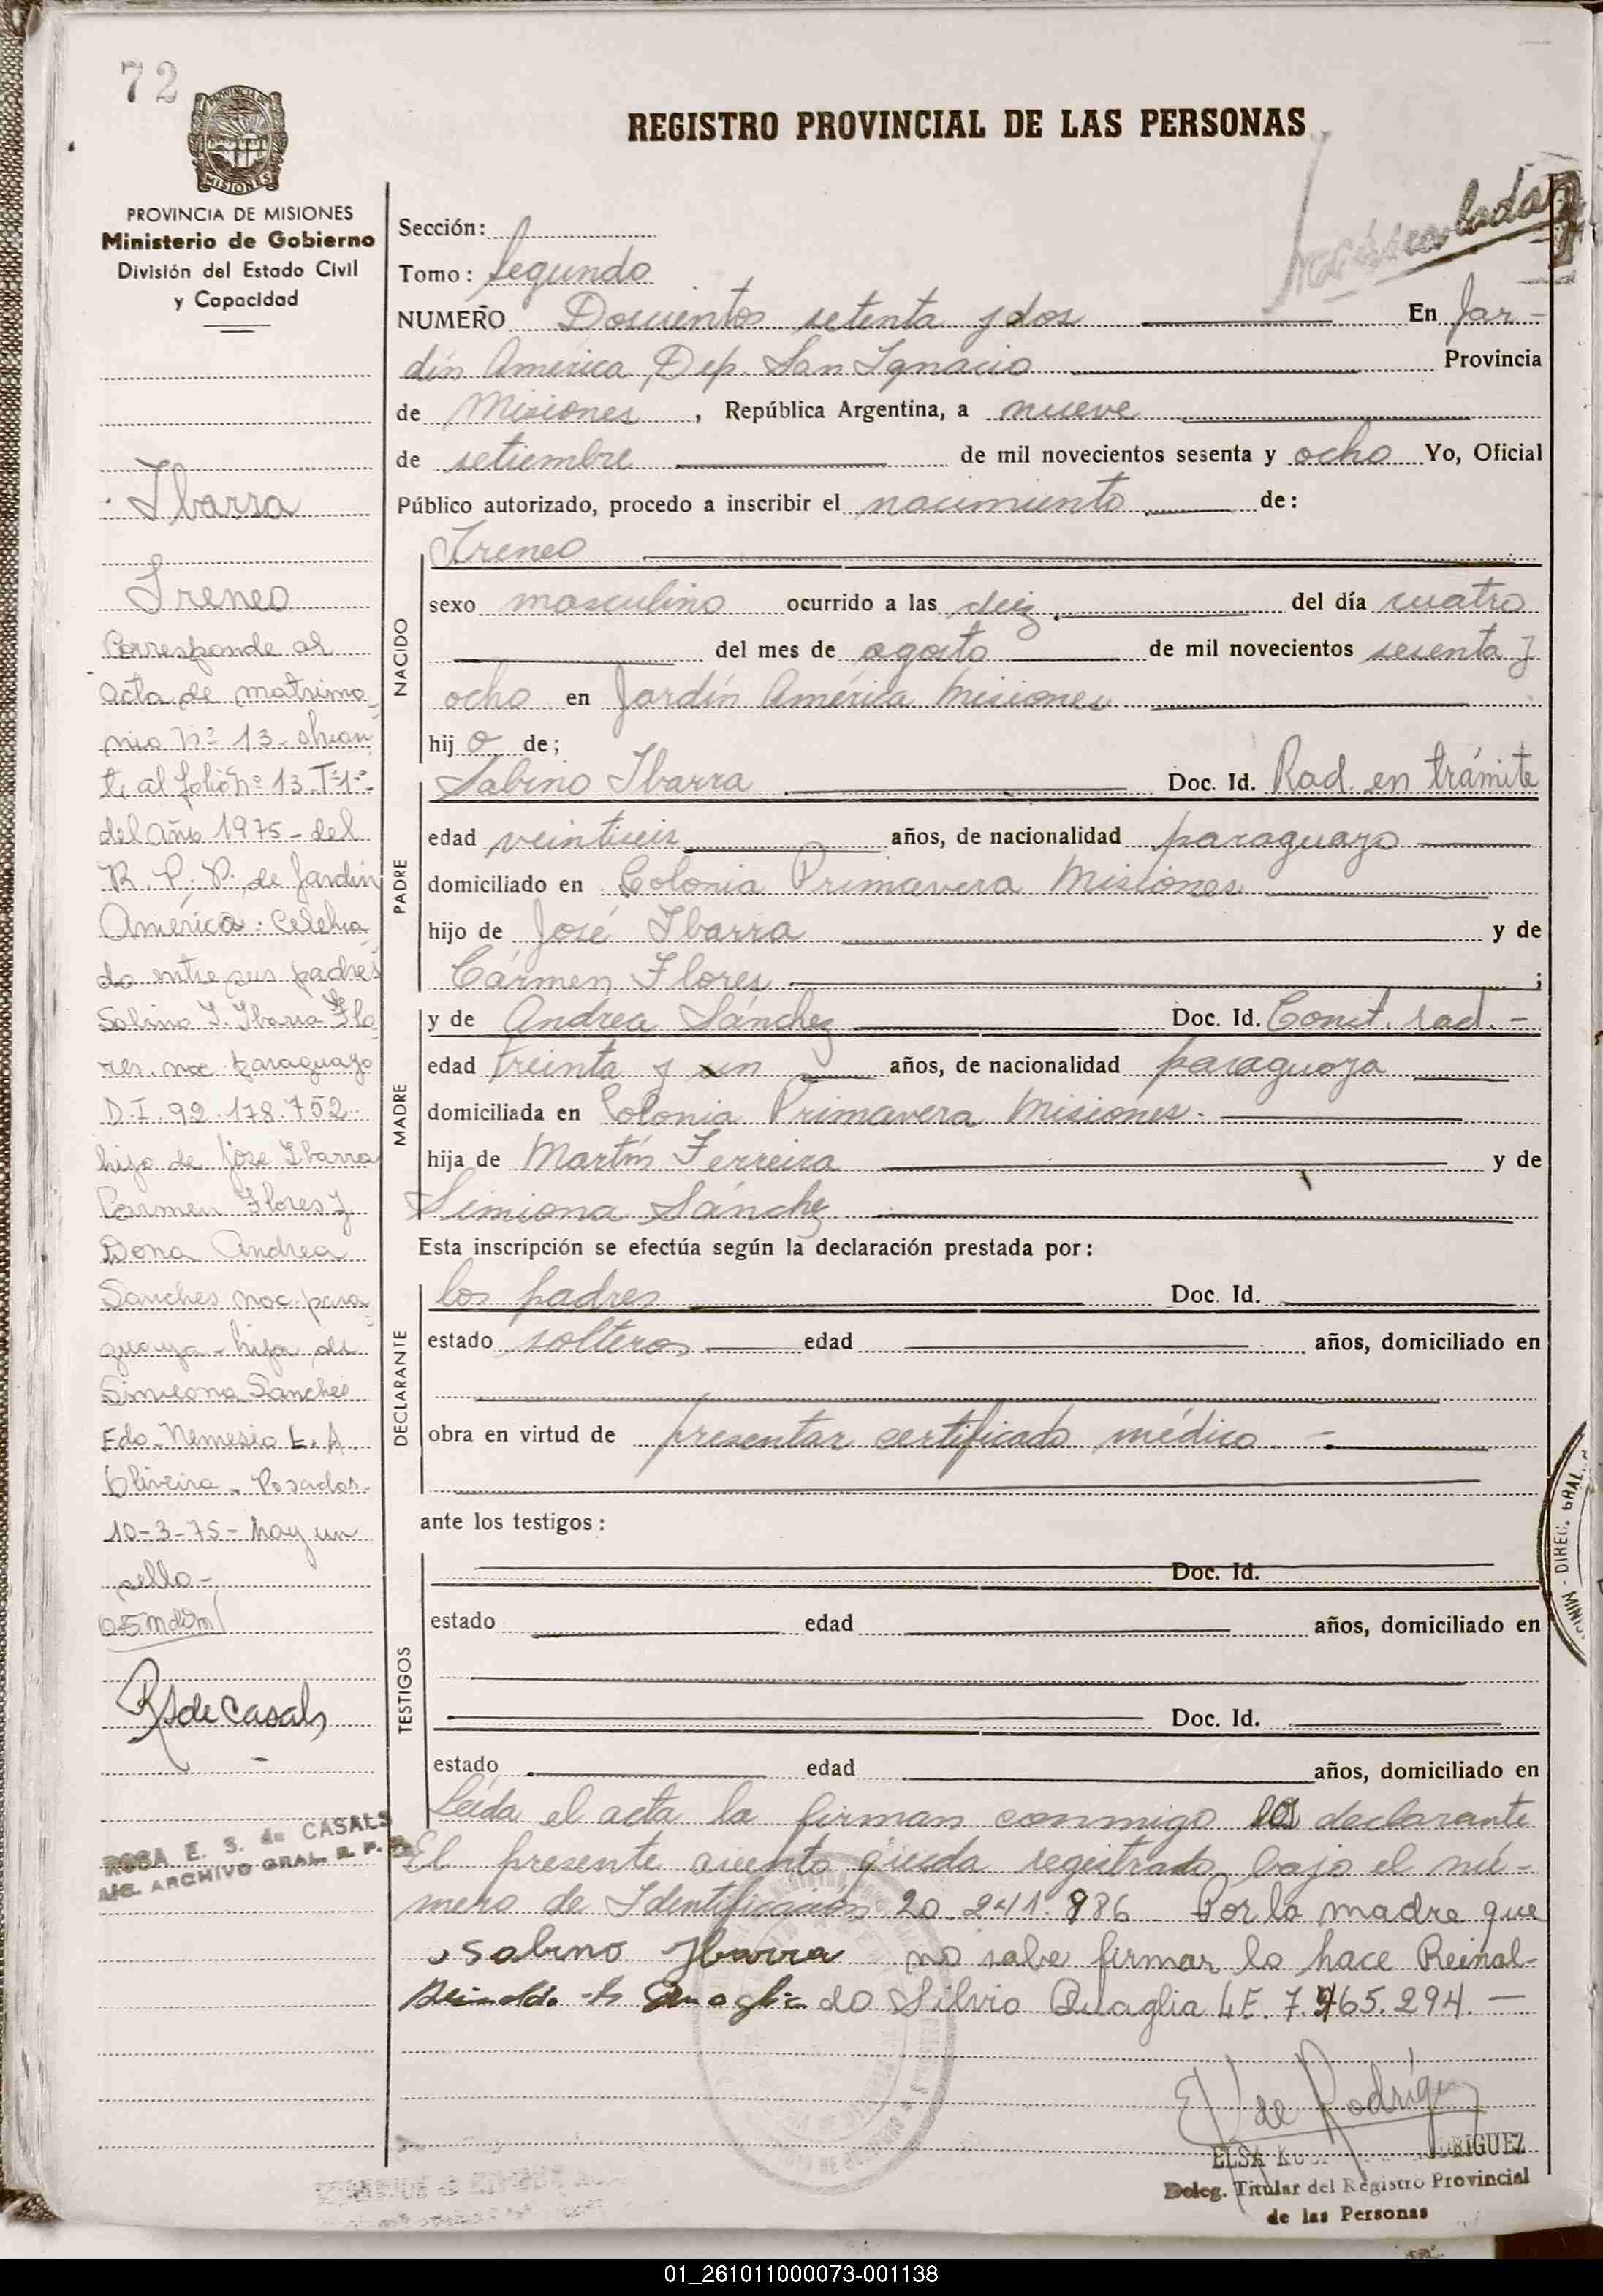 72
REGISTRO PROVINCIAL DE LAS PERSONAS
PROVINCIA DE MISIONES
Ministerio de Gobierno
División del Estado Civil
y Capacidad
Ibarra
Ireneo
Corresponde al
acta de matrimo
nio Nº 13 - obran
te al folio nº 13 Tº 1º -
del año 1975 - del
R. P. P. de Jardín
América. Celebra
do entre sus padres
Sabino I. Ibarra Flo
res. nac. paraguayo
D.I. 92.178.752
hijo de José Ibarra
Carmen Flores y
Dona Andrea
Sanches nac. para
guaya - hija de
Simeona Sanches
Fdo. Nemesio E. A.
Oliveira. Posadas.
10-3-75 - hay un
sello -
R S de Casals
ROSA E. S. de CASALS
ARCHIVO GRAL. R. P. P.
Sección:
Tomo: Segundo
NUMERO Doscientos setenta y dos En Jar-
dín América, Dep. San Ignacio Provincia
de Misiones, República Argentina, a nueve
de setiembre de mil novecientos sesenta y ocho Yo, Oficial
Público autorizado, procedo a inscribir el nacimiento de:
NACIDO
Ireneo
sexo masculino ocurrido a las diez del día cuatro
del mes de agosto de mil novecientos sesenta y
ocho en Jardín América Misiones
hijo de;
PADRE
Sabino Ibarra Doc. Id. Rad. en trámite
edad veintiseis años, de nacionalidad paraguayo
domiciliado en Colonia Primavera Misiones
hijo de José Ibarra y de
Cármen Flores ;
MADRE
y de Andrea Sánchez Doc. Id. Const. rad. -
edad treinta y un años, de nacionalidad paraguaya
domiciliada en Colonia Primavera Misiones.
hija de Martín Ferreira y de
Simiona Sánchez
Esta inscripción se efectúa según la declaración prestada por:
DECLARANTE
los padres Doc. Id.
estado solteros edad años, domiciliado en
obra en virtud de presentar certificado médico -
ante los testigos:
TESTIGOS
Doc. Id.
estado edad años, domiciliado en
Doc. Id.
estado edad años, domiciliado en
Leída el acta la firman conmigo los declarante
El presente asiento queda registrado bajo el nú-
mero de Identificación 20.241.986 Por la madre que
Sabino Ibarra no sabe firmar lo hace Reinal-
do Silvio Quaglia L.E. 7.465.294. -
E V de Rodríguez
ELSA RODRIGUEZ
Deleg. Titular del Registro Provincial
de las Personas
DIREC. GRAL.
01_261011000073-001138